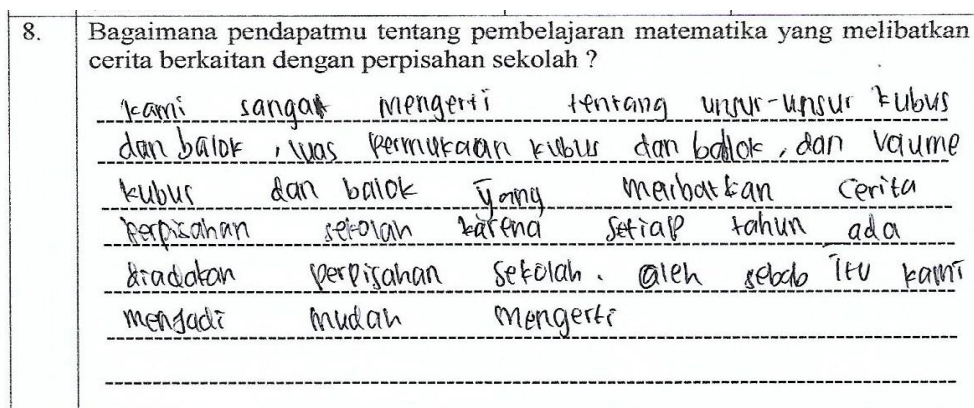 8. Bagaimana pendapatmu tentang pembelajaran matematika yang melibatkan
cerita berkaitan dengan perpisahan sekolah ?
kami sangat mengerti tentang unsur-unsur kubus
dan balok , luas permukaan kubus dan balok , dan volume
kubus dan balok yang melibatkan cerita
perpisahan sekolah karena setiap tahun ada
diadakan perpisahan sekolah . oleh sebab itu kami
menjadi mudah mengerti